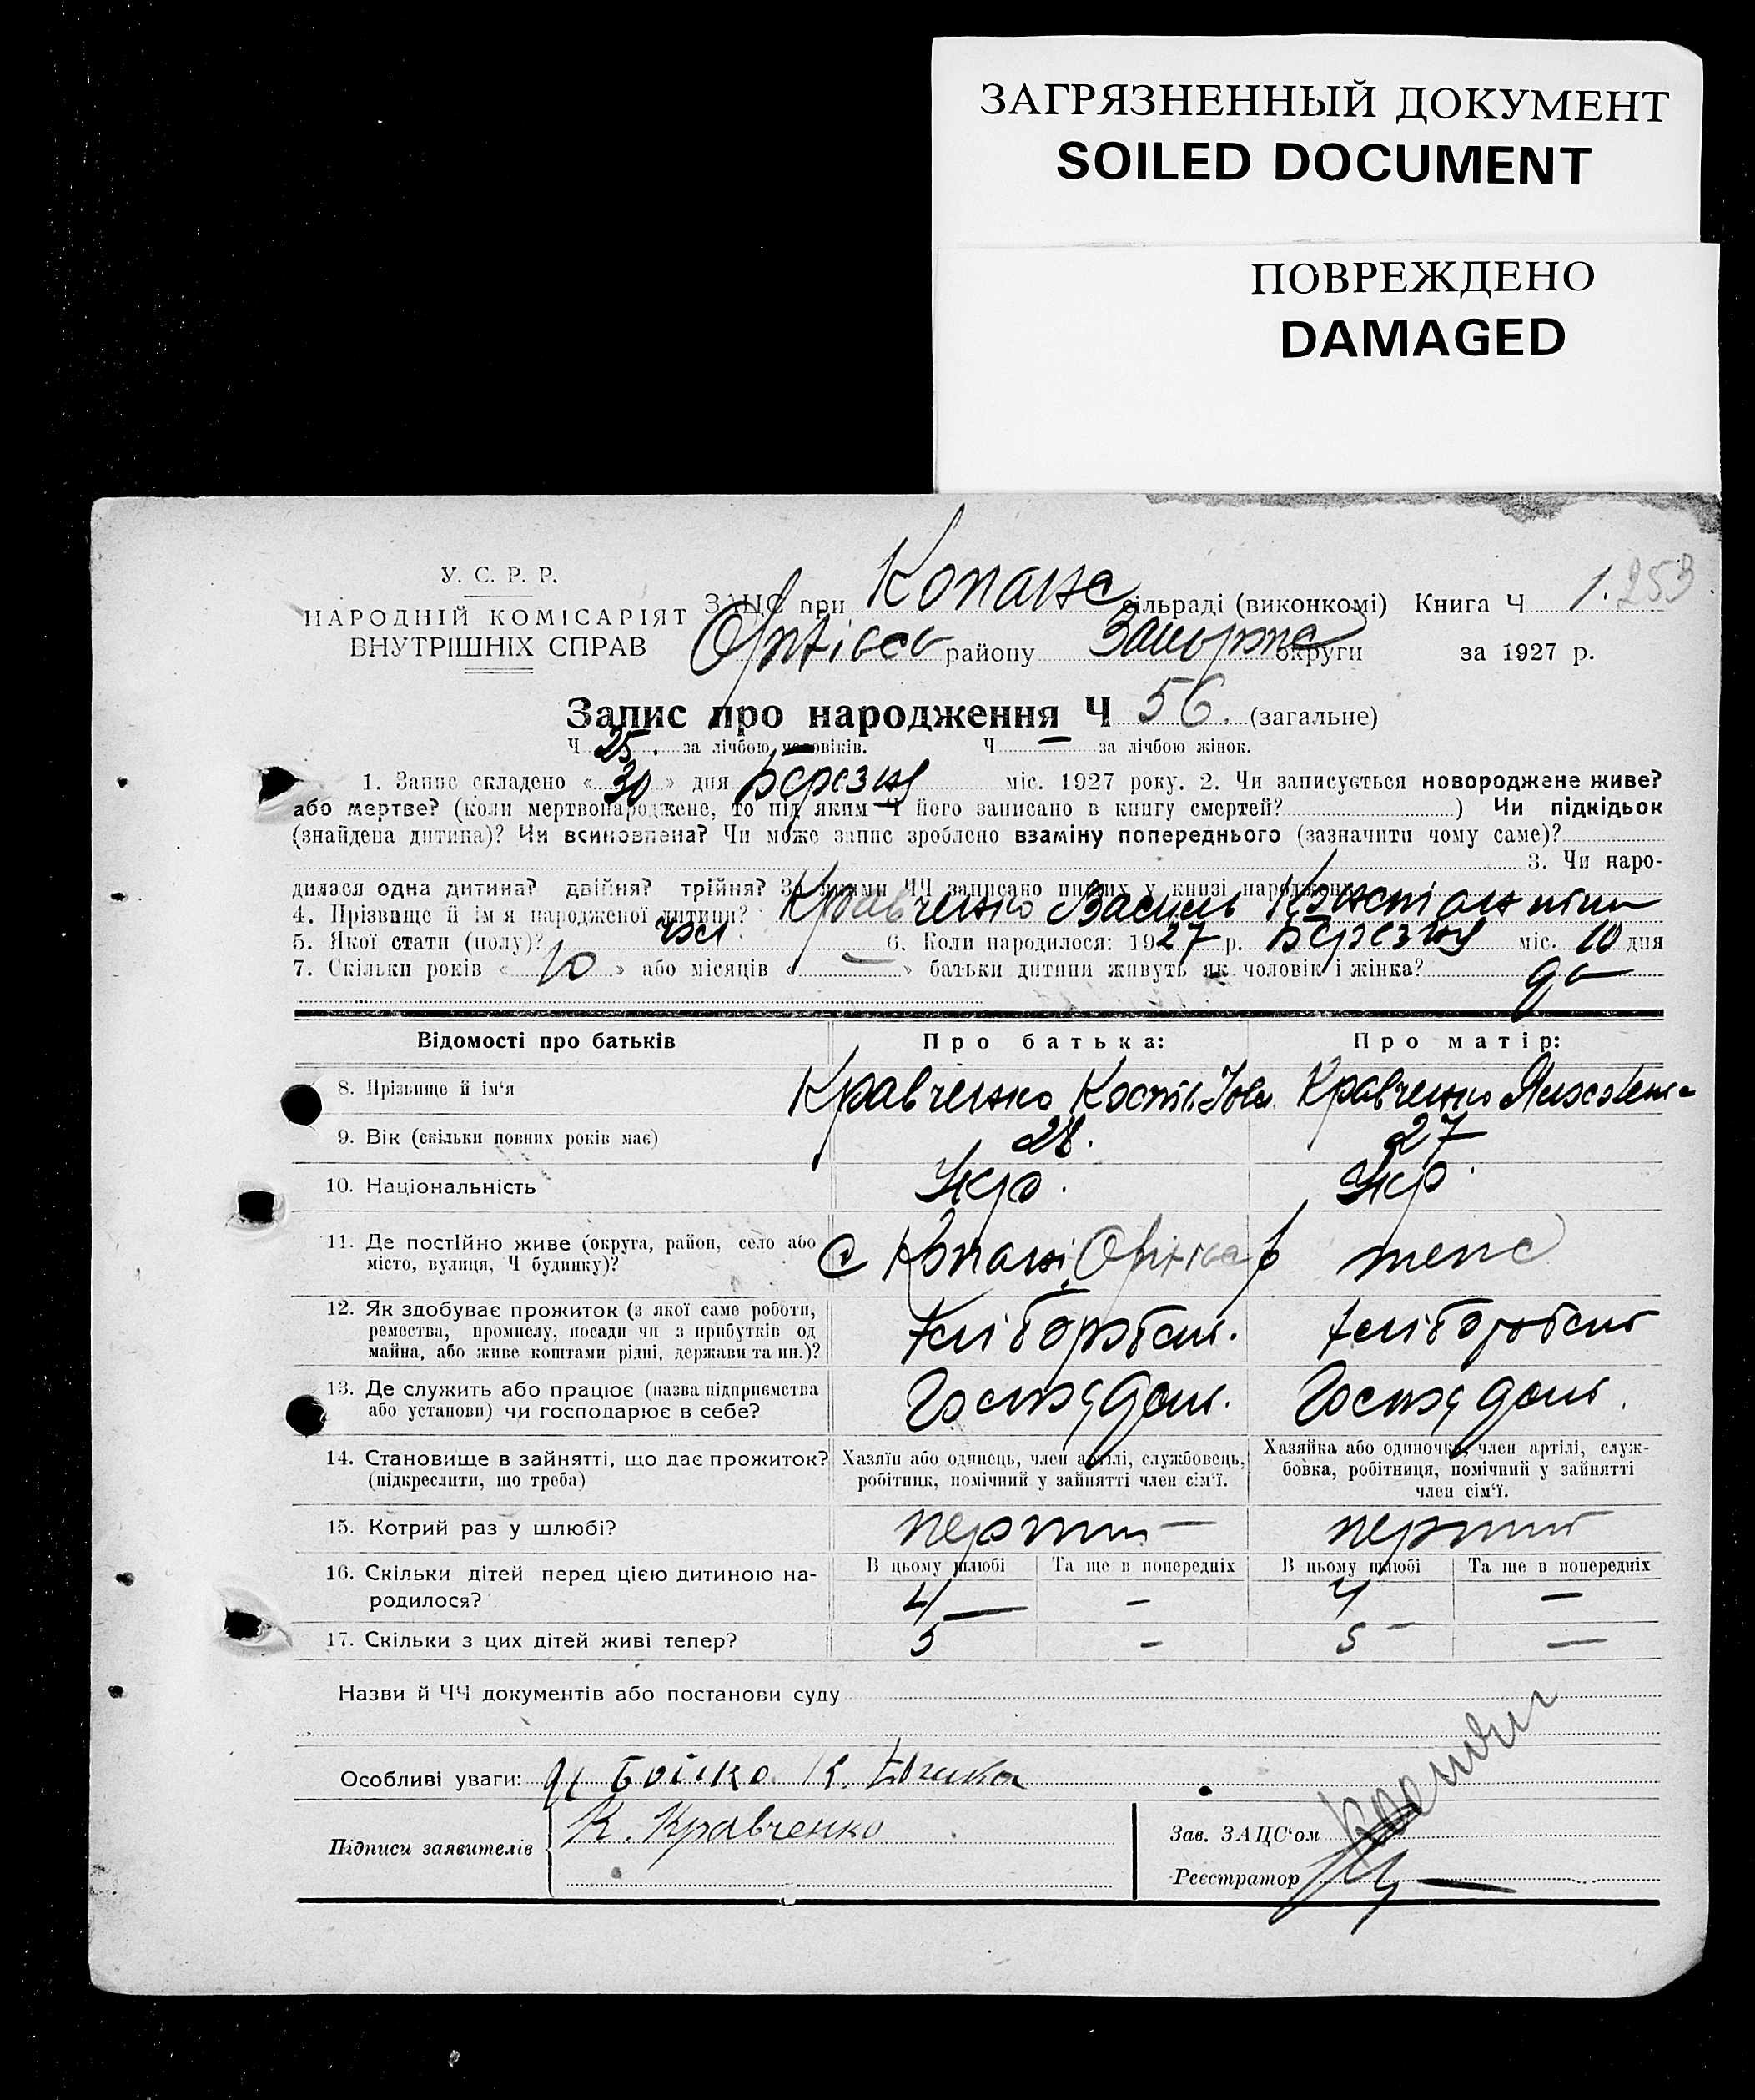 ЗАГРЯЗНЕННЫЙ ДОКУМЕНТ
SOILED DOCUMENT
ПОВРЕЖДЕНО
DAMAGED
У. С. Р. Р.
НАРОДНІЙ КОМІСАРІЯТ
ВНУТРІШНІХ СПРАВ
ЗАЦС при Копанс сільраді (виконкомі) Книга Ч 1. 253
району Запоріж округи за 1927 р.
Запис про народження Ч 56. (загальне)
Ч 25. за лічбою чоловіків. Ч — за лічбою жінок.
1. Запис складено «30» дня Березня міс. 1927 року. 2. Чи записується новороджене живе?
або мертве? (коли мертвонароджене, то під яким Ч його записано в книгу смертей? ) Чи підкідьок
(знайдена дитина)? Чи всиновлена? Чи може запис зроблено взаміну попереднього (зазначити чому саме)?
3. Чи наро-
дилася одна дитина? двійня? трійня? За якими ЧЧ записано инших у книзі народжень
4. Прізвище й ім'я народженої дитини? Кравченко Василь Константин
5. Якої стати (полу)? чол 6. Коли народилося: 1927 р. Березня міс. 10 дня
7. Скільки років «10» або місяців «—» батьки дитини живуть як чоловік і жінка?
Відомості про батьків Про батька: Про матір:
8. Прізвище й ім'я Кравченко Кость Кравченко
9. Вік (скільки повних років має) 28. 27
10. Національність Укр. Укр.
11. Де постійно живе (округа, район, село або
місто, вулиця, Ч будинку)? с Копані Оріхів теж
12. Як здобуває прожиток (з якої саме роботи,
ремества, промислу, посади чи з прибутків од
майна, або живе коштами рідні, держави та ин.)? хліборобст. хліборобст
13. Де служить або працює (назва підприємства
або установи) чи господарює в себе?
14. Становище в зайнятті, що дає прожиток? Хазяїн або одинець, член артілі, службовець, Хазяйка або одиночка, член артілі, служ-
(підкреслити, що треба) робітник, помічний у зайнятті член сім'ї. бовка, робітниця, помічний у зайнятті
член сім'ї.
15. Котрий раз у шлюбі?
16. Скільки дітей перед цією дитиною на- В цьому шлюбі Та ще в попередніх В цьому шлюбі Та ще в попередніх
родилося? 4 — – 4 —
17. Скільки з цих дітей живі тепер? 5 – 5 – —
Назви й ЧЧ документів або постанови суду
Особливі уваги:
Підписи заявителів К. Кравченко
Зав. ЗАЦС'ом
Реєстратор